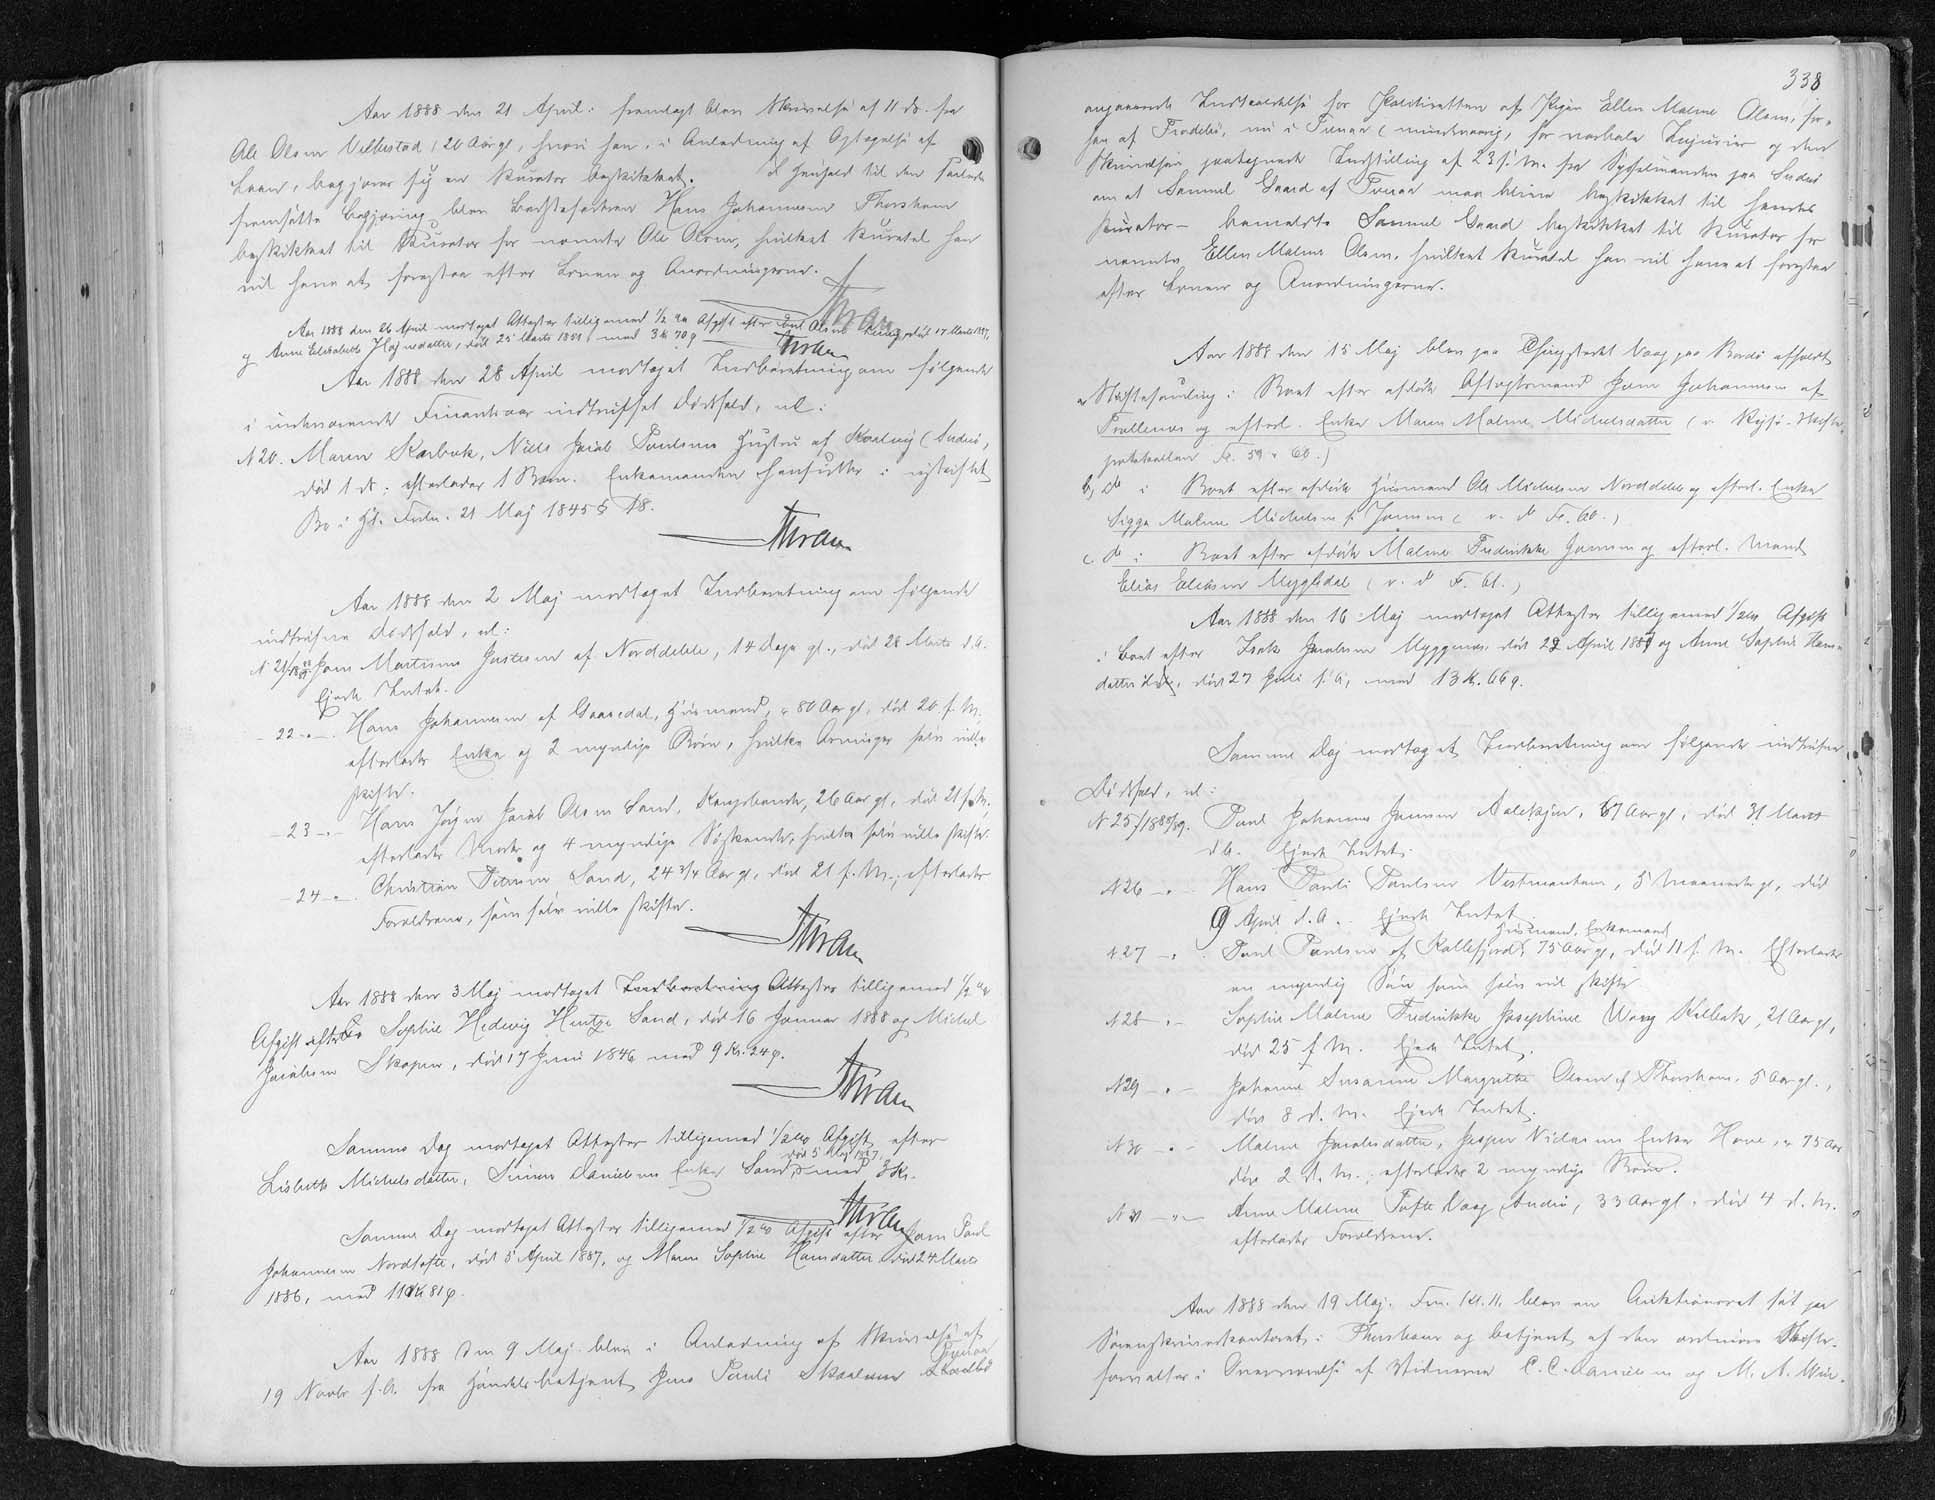 Aar 1888 den 21 April: fremlagt blev Skrivelse af 11 ds. fra
Ole Olsen Velbestad, 20 Aar gl., hvori han, i Anledning af Optagelse af
Laan, begjærer sig en Kurator beskikket. I Henhold til den saaledes
fremsatte Begjæring blev Hans Johannesen Thorshavn
beskikket til Kurator for nævnte Ole Olsen, hvilket Kuratel han
vil have at forestaa efter Loven og Anordningerne.
Thran
Aar 1888 den 26 April modtaget Attester tilligemed ½ % Afgift efter Olsen død 17 Marts 1887,
og Anne Elisabeth død 25 Marts med 3 Kr 70 Ø
Thran
Aar 1888 den 28 April modtaget Indberetning om følgende
i indeværende Finantsaar indtrufset Dødsfald, nl:
N 20. Maren Kærbæk, Niels Jacob Poulsens Hustru af Skaalevig (Andeø,
død 1 ds; efterlader 1 Barn. Enkemanden hensidder i uskiftet
Bo i H. t. Frdn. 21 Maj 1845 § 18.
Thran
Aar 1888 den 2 Maj modtaget Indberetning om følgende
indtrufne Dødsfald, nl:
N 21/1888 Jens Martinus Justesen af Norddeble, 14 Dage gl., død 28 Marts d. A.
Ejede Intet.
- 22 - Hans Johannesen af Gaasedal, Husmand, 80 Aar gl., død 20 f. M.
efterlader Enke og 2 myndige Børn, hvilke Arvinger selv ville
skifte.
- 23 - Hans Jørgen Jacob Olsen Sand, Ungkarl, 26 Aar gl., død 21 f. M.
efterlader Moder og 4 myndige Søskende, hvilke selv ville skifte.
- 24 - Christian Petersen Sand, 24 3/4 Aar gl., død 21 f. M.; efterlader
Forældrene, som selv ville skifte.
Thran
Aar 1888 den 3 Maj modtaget Indberetning Attester tilligemed ½ %
Afgift efter Sophie Hedevig Hentze Sand, død 16 Januar 1888 og Michel
Jacobsen Skopen, død 17 Juni 1846 med 9 Kr. 24 Ø.
Thran
Samme Dag modtaget Attester tilligemed ½ % Afgift efter
Lisbeth Michelsdatter, Simon Danielsens Enke Sand, død 5 Maj 1887, med 3 Kr.
Thran
Samme Dag modtaget Attester tilligemed ½ % Afgift efter Jens Poul
Johannesen Nordtofte, død 5 April 1887, og Maren Sophie Hansdatter død 24 Marts
1886, med 11 Kr 81 Ø.
Aar 1888 den 9 Maj blev i Anledning af Skrivelse af
19 Novbr f. A. fra Handelsbetjent Jens Pauli Skaalum
338
angaaende Indkaldelse for Politiretten af Pigen Ellen Malene Olsen, for-
hen af Frodebø, nu i Tveraa (mindreaarig, for verbale Injurier og den
Skrivelsen paategnede Indstilling af 23 f. M. fra Sysselmanden paa Suderø
om at Samuel Gaard af Tveraa maa blive beskikket til hendes
Kurator - bemeldte Samuel Gaard beskikket til Kurator for
nævnte Ellen Malene Olsen, hvilket Kuratel han vil have at forestaa
efter Loven og Anordningerne.
Aar 1888 den 15 Maj blev paa Thingstedet Vaag paa Bordø afholdt
a, Skiftesamling i Boet efter afdøde Aftægtsmand Joen Johannesen af
Trøllenæs og efterl. Enke Maren Malene Michelsdatter (v. Rejse-Skifte-
protokollen Fr. 59 & 60.)
b, do i Boet efter afdøde Husmand Ole Michelsen Norddeble og efterl. Enke
Sigga Malene Michelsen f. Joensen (v. do Fr. 60.)
c. do i Boet efter afdøde Malene Fredrikke Joensen og efterl. Mand
Elias Eliassen Mygledal (v. do F. 61.)
Aar 1888 den 16 Maj modtaget Attester tilligemed ½ % Afgift
i Boet efter Isak Jacobsen Myggenæs død 22 April 1887 og Anne Sophie Hans-
datter død 27 Juli f. A, med 13 Kr. 66 Ø.
Samme Dag modtaget Indberetning om følgende indtrufne
Dødsfald, nl:
N 25/1888/89. Poul Johannes Joensen 67 Aar gl., død 31 Marts
d. A. Ejede Intet.
N 26 - Hans Pauli Poulsen Vestmanhavn, 5 Maaneder gl, død
9 April d. A. Ejede Intet.
N 27 - Poul Poulsen af Kollefjord, Husmand, Enkemand 75 Aar gl, død 11 f. M. Efterlader
en myndig Søn som selv vil skifte
N 28 - Sophie Malene Fredrikke Josephine Waag Kalbak, 21 Aar gl,
død 25 f. M. Ejede Intet.
N 29 - Johanne Susanne Margrethe Olsen af Thorshavn, 5 Aar gl.,
død 8 d. M. Ejede Intet.
N 30 - Malene Jacobsdatter, Jesper Niclasens Enke Hove, 75 Aar
død 2 d. M.; efterlader 2 myndige Børn.
N 31 - Anne Malene Tofte Vaag Suderø, 33 Aar gl, død 4 d. M.
efterlader Forældrene.
Aar 1888 den 19 Maj. Fm. Kl. 11, blev en Auktionsret sat paa
Sorenskriverkontoret i Thorshavn og betjent af den ordinære Skifte-
forvalter i Overværelse af Vidnerne C. C. Danielsen og M. A. Win-